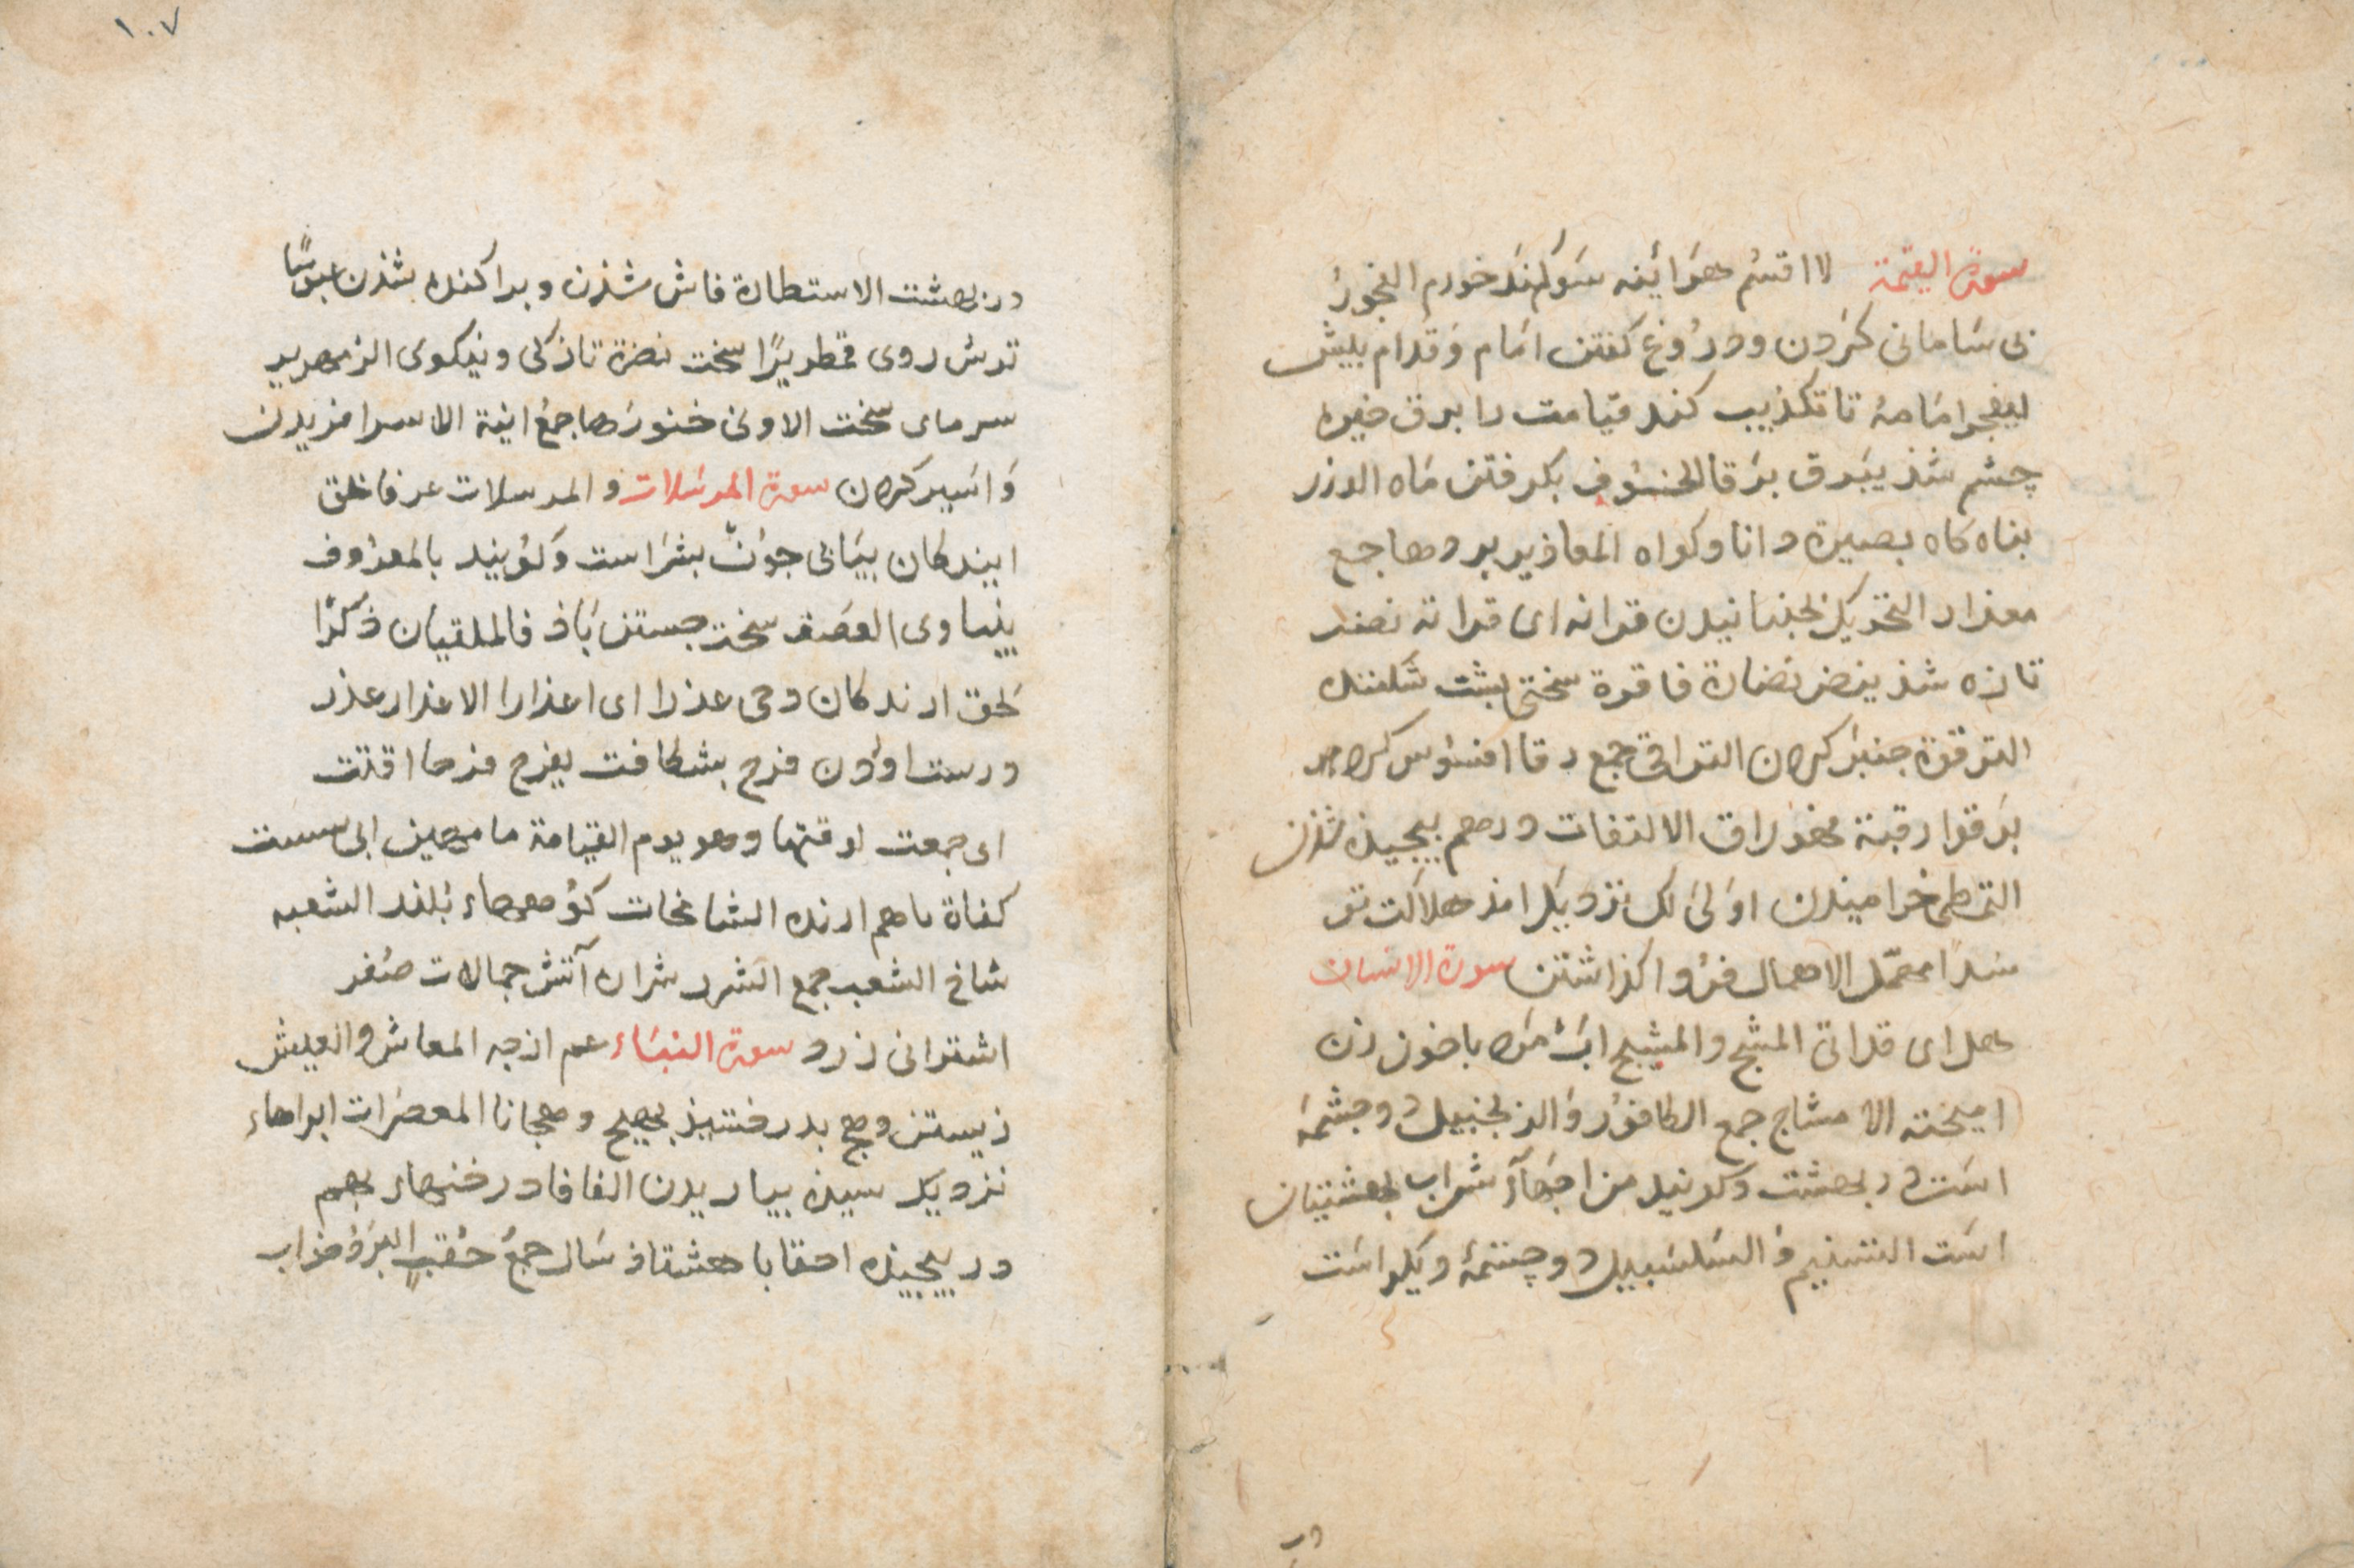 سورة القيمة لا اقسم هرآئينه سوكند خورم الفجور
بى سامانى كردن ودروغ كفتن امام وقدام پيش
ليفجر امامه تا تكذيب كند قيامت را برق خيره
چشم شذ يبرق برقا الخسوف بكرفتن ماه الوزر
پناه كاه بصيرة دانا وكواه المعاذير پردها جمع
معذار التحريك بجنبانيدن قرانه اى قراته نضر
تازه شذ ينضر نضارة فاقرة سختى پشت شكننده
الترقوة چنبر كردن التراقى جمع رقا افسوس كرد
يرقوا رقية فهو راق الالتفات درهم پيچيذه شذن
التمطى خراميدن اولى لك نزديك امذ هلاكت تو
سدا مهمل الاهمال فرو اكذاشتن سورة الانسان
هل اى قد اتى المشج والمشيج اب مرد با خون زن
اميخته الامشاج جمع الكافور والزنجبيل دو چشمه
است در بهشت وكويند مزاجها شراب بهشتيان
است التسنيم والسلسبيل دو چشمۀ ديكر است
در
١٠٧
در بهشت الاستطارة فاش شذن وپراكنده شذن عبوسا
ترش روى قمطريرا سخت نضرة تازكى ونيكوى الزمهرير
سرماى سخت الاوانى خنورها جمع انية الاسر افريدن
واسير كردن سورة المرسلات والمرسلات عرفا بحق
ايندكان پياپى جون بش راست وكويند بالمعروف
بنياوى العصف سخت جستن باذ فالملقيات ذكرا
بحق ارندكان وحى عذرا اى اعذارا الاعذار عذر
درست اوردن فرج بشكافت يفرج فرجا اقتت
اى جمعت لوقتها وهو يوم القيامة ما مهين ابى سست
كفاة باهم ارنده الشامخات كوهها بلند الشعبه
شاخ الشعب جمع الشرر شراره آتش جمالات صفر
اشترانى زرد سورة النباء عم از چه المعاش والعيش
زيستن وهج بدرفشيذ يهيج وهجانا المعصرات ابرهاء
نزديك رسيذه بباريدن الفافا درختها بهم
در پيچيذه احقابا هشتاذ سال جمع حقب البرد خواب